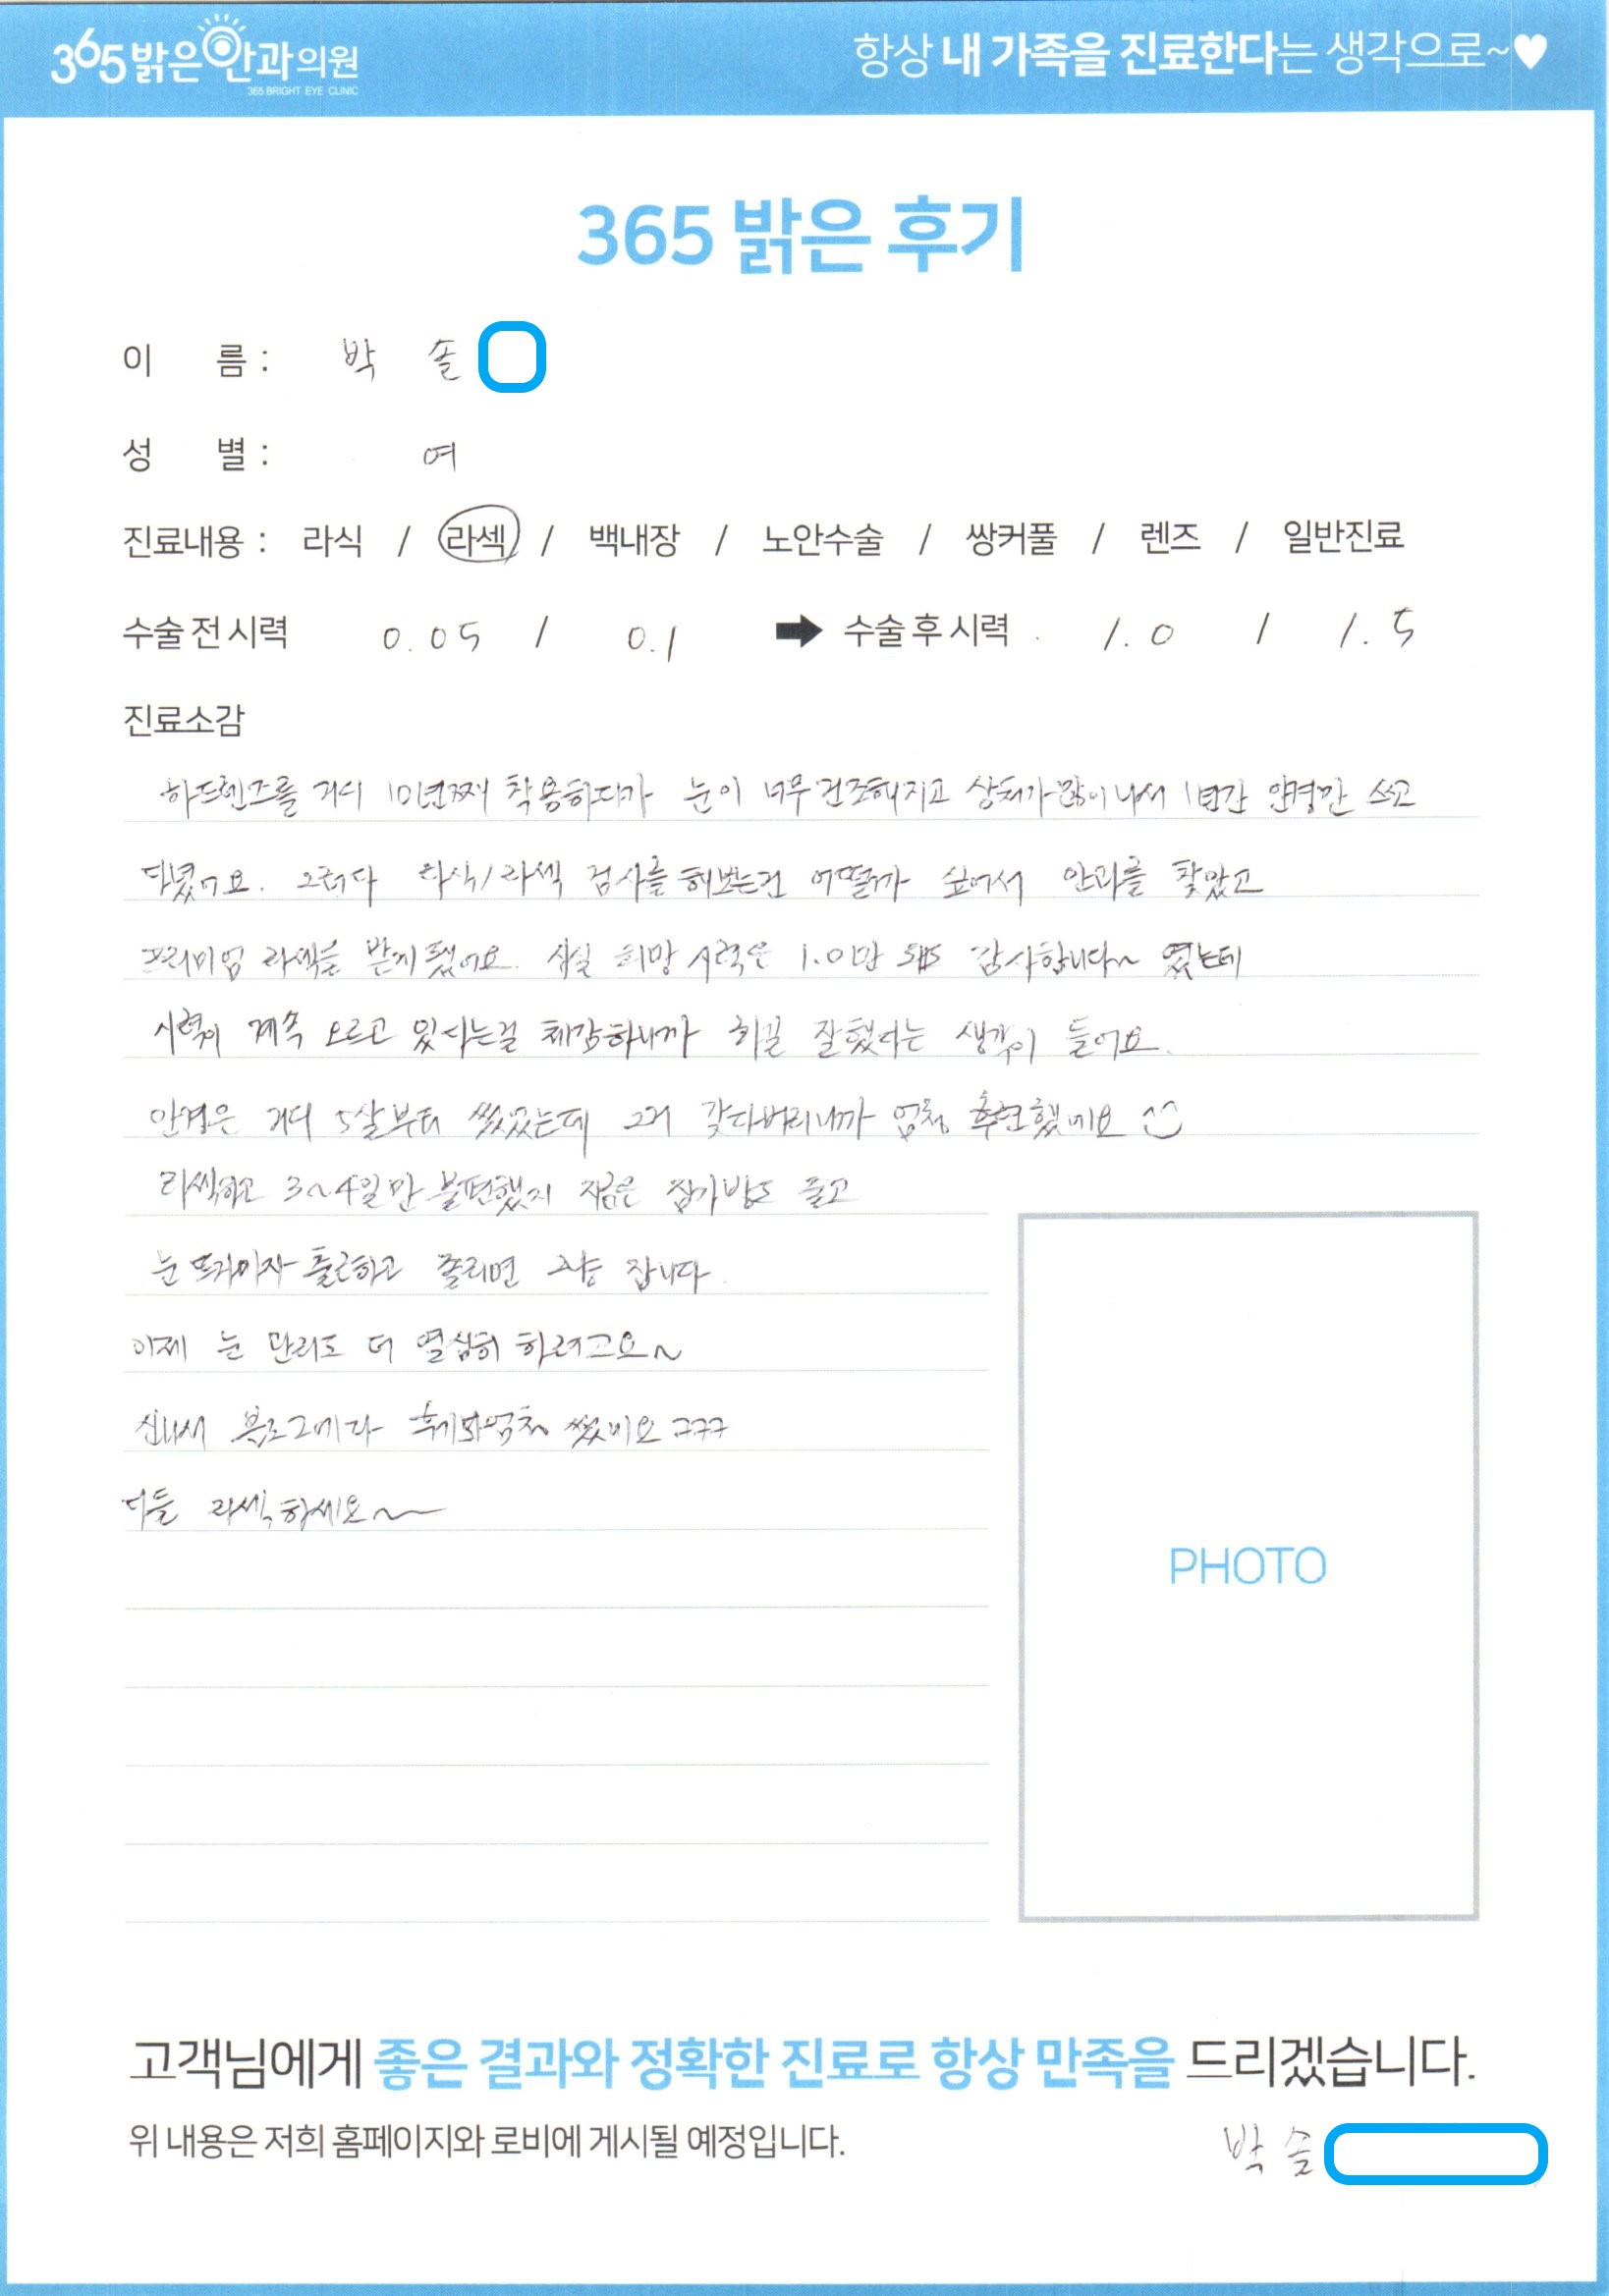 365밝은안과의원
365 BRIGHT EYE CLINIC
항상 내 가족을 진료한다는 생각으로~♥
365 밝은 후기
이 름 : 박 솔
성 별 : 여
진료내용 : 라식 / 라섹 / 백내장 / 노안수술 / 쌍커풀 / 렌즈 / 일반진료
수술 전 시력 0.05 / 0.1 ➡ 수술 후 시력 1.0 / 1.5
진료소감
하드렌즈를 거의 10년째 착용하다가 눈이 너무 건조해지고 상처가 많이 나서 1년간 안경만 쓰고
다녔어요. 그러다 라식/라섹 검사를 해보는건 어떨까 싶어서 안과를 찾았고
프리미엄 라섹을 받게 됐어요. 사실 희망 시력은 1.0이만 감사합니다~ 였는데
시력이 계속 오르고 있다는걸 체감하니까 하길 잘했다는 생각이 들어요.
안경은 거의 5살부터 썼었는데 그거 갖다버리니까 엄청 후련했네요
라섹하고 3~4일만 불편했지 지금은 집가방도 들고
눈 뜨자마자 출근하고 졸리면 그냥 잡니다.
이제 눈 관리도 더 열심히 하려고요~
신나서 블로그에다 후기도 엄청 썼네요 ㅋㅋㅋ
다들 라섹하세요~
PHOTO
고객님에게 좋은 결과와 정확한 진료로 항상 만족을 드리겠습니다.
위 내용은 저희 홈페이지와 로비에 게시될 예정입니다.
박 솔